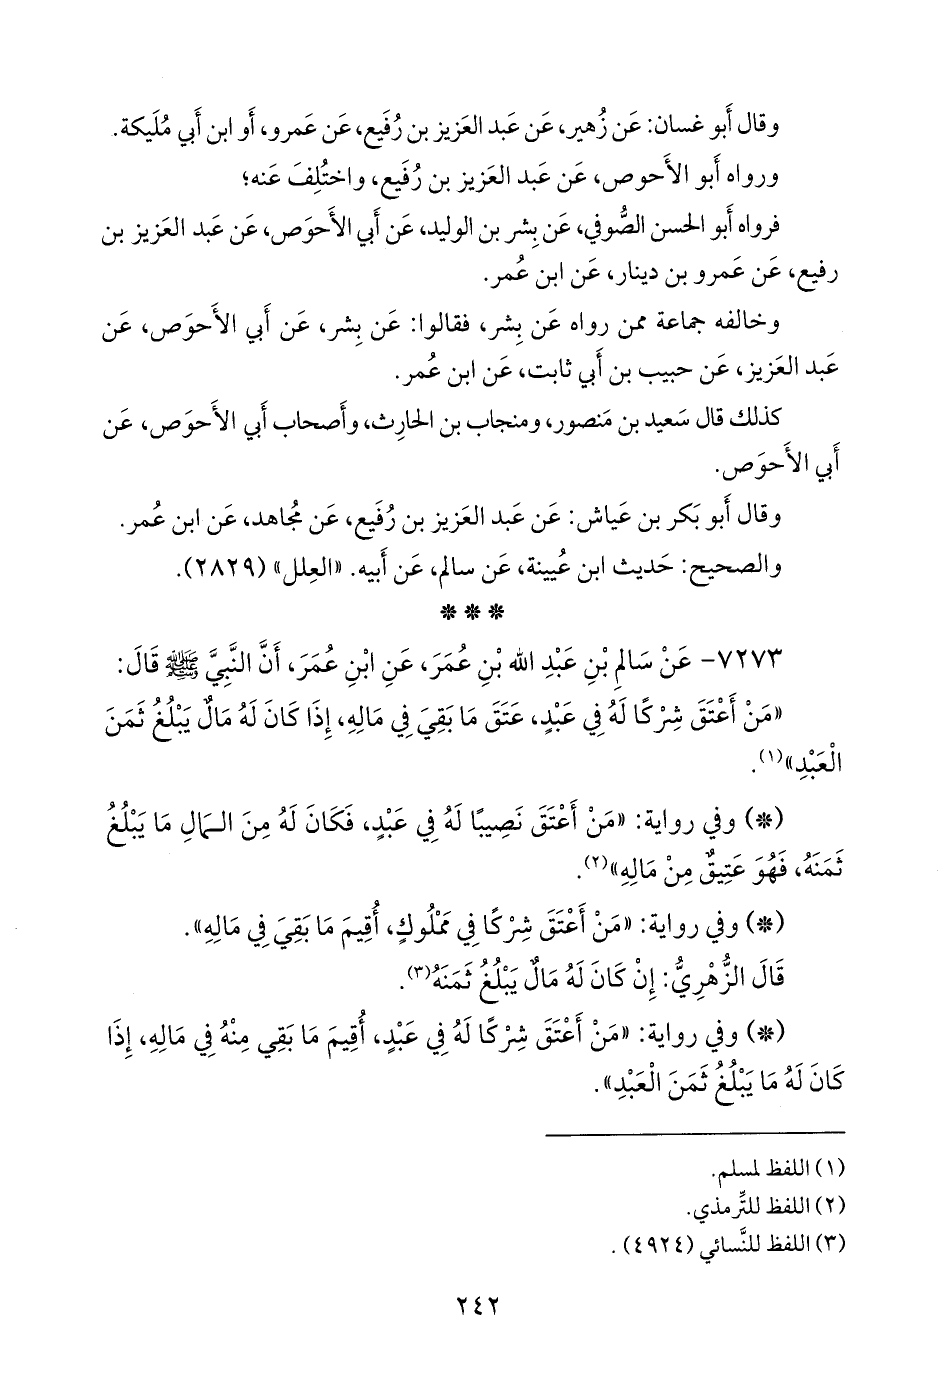 وقال أَبو غسان: عَن زُهير، عَن عَبد العَزيز بن رُفَيع، عَن عَمرو، أَو ابن أَبي مُلَيكة.
ورواه أَبو الأَحوص، عَن عَبد العَزيز بن رُفَيع، واختُلِفَ عَنه؛
فرواه أَبو الحسن الصُّوفي، عَن بِشر بن الوليد، عَن أَبي الأَحوَص، عَن عَبد العَزيز بن
رفيع، عَن عَمرو بن دينار، عَن ابن عُمر.
وخالفه جماعة ممن رواه عَن بِشر، فقالوا: عَن بِشر، عَن أَبي الأَحوَص، عَن
عَبد العَزيز، عَن حبيب بن أَبي ثابت، عَن ابن عُمر.
كذلك قال سَعيد بن مَنصور، ومنجاب بن الحارِث، وأَصحاب أَبي الأَحوَص، عَن
أَبي الأَحوَص.
وقال أَبو بَكر بن عَياش: عَن عَبد العَزيز بن رُفَيع، عَن مُجاهد، عَن ابن عُمر.
والصحيح: حَديث ابن عُيينة، عَن سالم، عَن أَبيه. «العِلل» (٢٨٢٩).
* * *
٧٢٧٣- عَنْ سَالِمِ بْنِ عَبْدِ الله بْنِ عُمَرَ، عَنِ ابْنِ عُمَرَ، أَنَّ النَّبِيَّ ﷺ قَالَ:
«مَنْ أَعْتَقَ شِرْكًا لَهُ فِي عَبْدٍ، عَتَقَ مَا بَقِيَ فِي مَالِهِ، إِذَا كَانَ لَهُ مَالٌ يَبْلُغُ ثَمَنَ
الْعَبْدِ»(١).
(*) وفي رواية: «مَنْ أَعْتَقَ نَصِيبًا لَهُ فِي عَبْدٍ، فَكَانَ لَهُ مِنَ الـمَالِ مَا يَبْلُغُ
ثَمَنَهُ، فَهُوَ عَتِيقٌ مِنْ مَالِهِ»(٢).
(*) وفي رواية: «مَنْ أَعْتَقَ شِرْكًا فِي مَمْلُوكٍ، أُقِيمَ مَا بَقِيَ فِي مَالِهِ».
قَالَ الزُّهْرِيُّ: إِنْ كَانَ لَهُ مَالٌ يَبْلُغُ ثَمَنَهُ(٣).
(*) وفي رواية: «مَنْ أَعْتَقَ شِرْكًا لَهُ فِي عَبْدٍ، أُقِيمَ مَا بَقِي مِنْهُ فِي مَالِهِ، إِذَا
كَانَ لَهُ مَا يَبْلُغُ ثَمَنَ الْعَبْدِ».
(١) اللفظ لمسلم.
(٢) اللفظ للتِّرمذي.
(٣) اللفظ للنَّسائي (٤٩٢٤).
٢٤٢